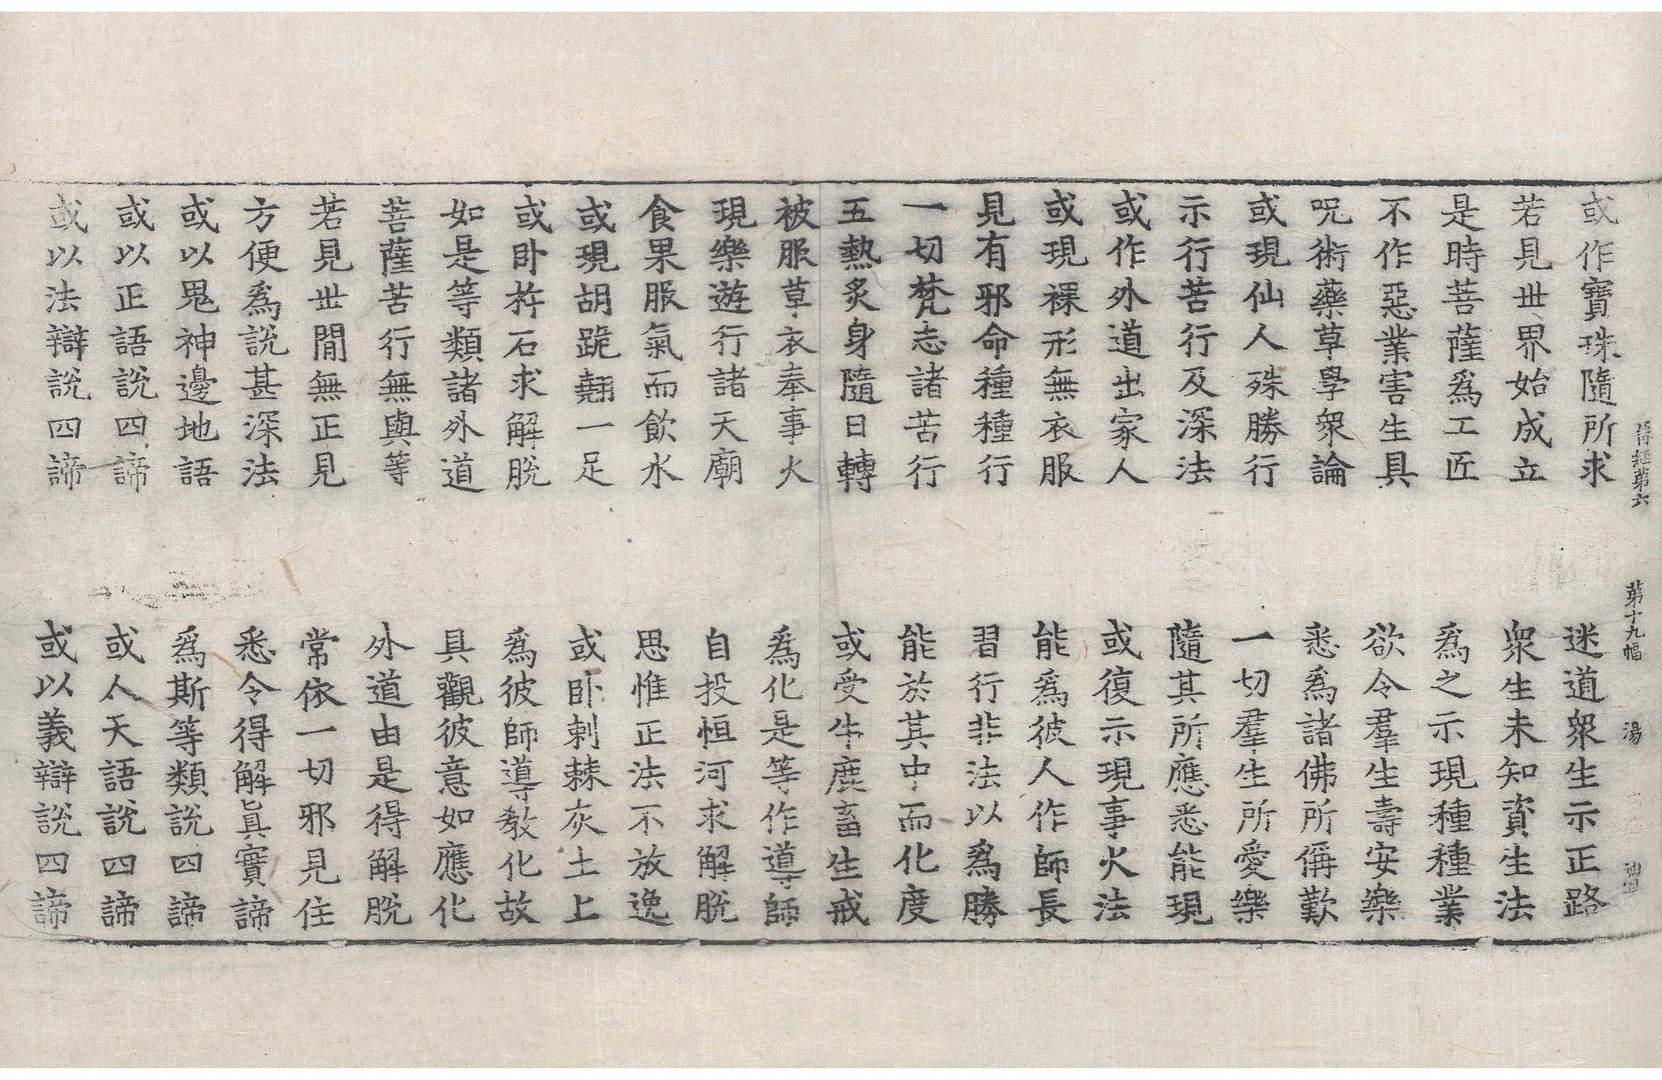 經第六　第十九幅　湯
或作寶珠隨所求　迷道衆生示正路
若見世界始成立　衆生未知資生法
是時菩薩爲工匠　爲之示現種種業
不作惡業害生具　欲令羣生壽安樂
呪術藥草學衆論　悉爲諸佛所偁歎
或現仙人殊勝行　一切羣生所愛樂
示行苦行及深法　隨其所應悉能現
或作外道出家人　或復示現事火法
或現裸形無衣服　能爲彼人作師長
見有邪命種種行　習行非法以爲勝
一切梵志諸苦行　能於其中而化度
五熱炙身隨日轉　或受牛鹿畜生戒
被服草衣奉事火　爲化是等作導師
現樂遊行諸天廟　自投恒河求解脫
食果服氣而飲水　思惟正法不放逸
或現胡跪翹一足　或卧刺棘灰土上
或卧杵石求解脫　爲彼師導教化故
如是等類諸外道　具觀彼意如應化
菩薩苦行無與等　外道由是得解脫
若見世間無正見　常依一切邪見住
方便爲說甚深法　悉令得解眞實諦
或以鬼神邊地語　爲斯等類說四諦
或以正語說四諦　或人天語說四諦
或以法辯說四諦　或以義辯說四諦